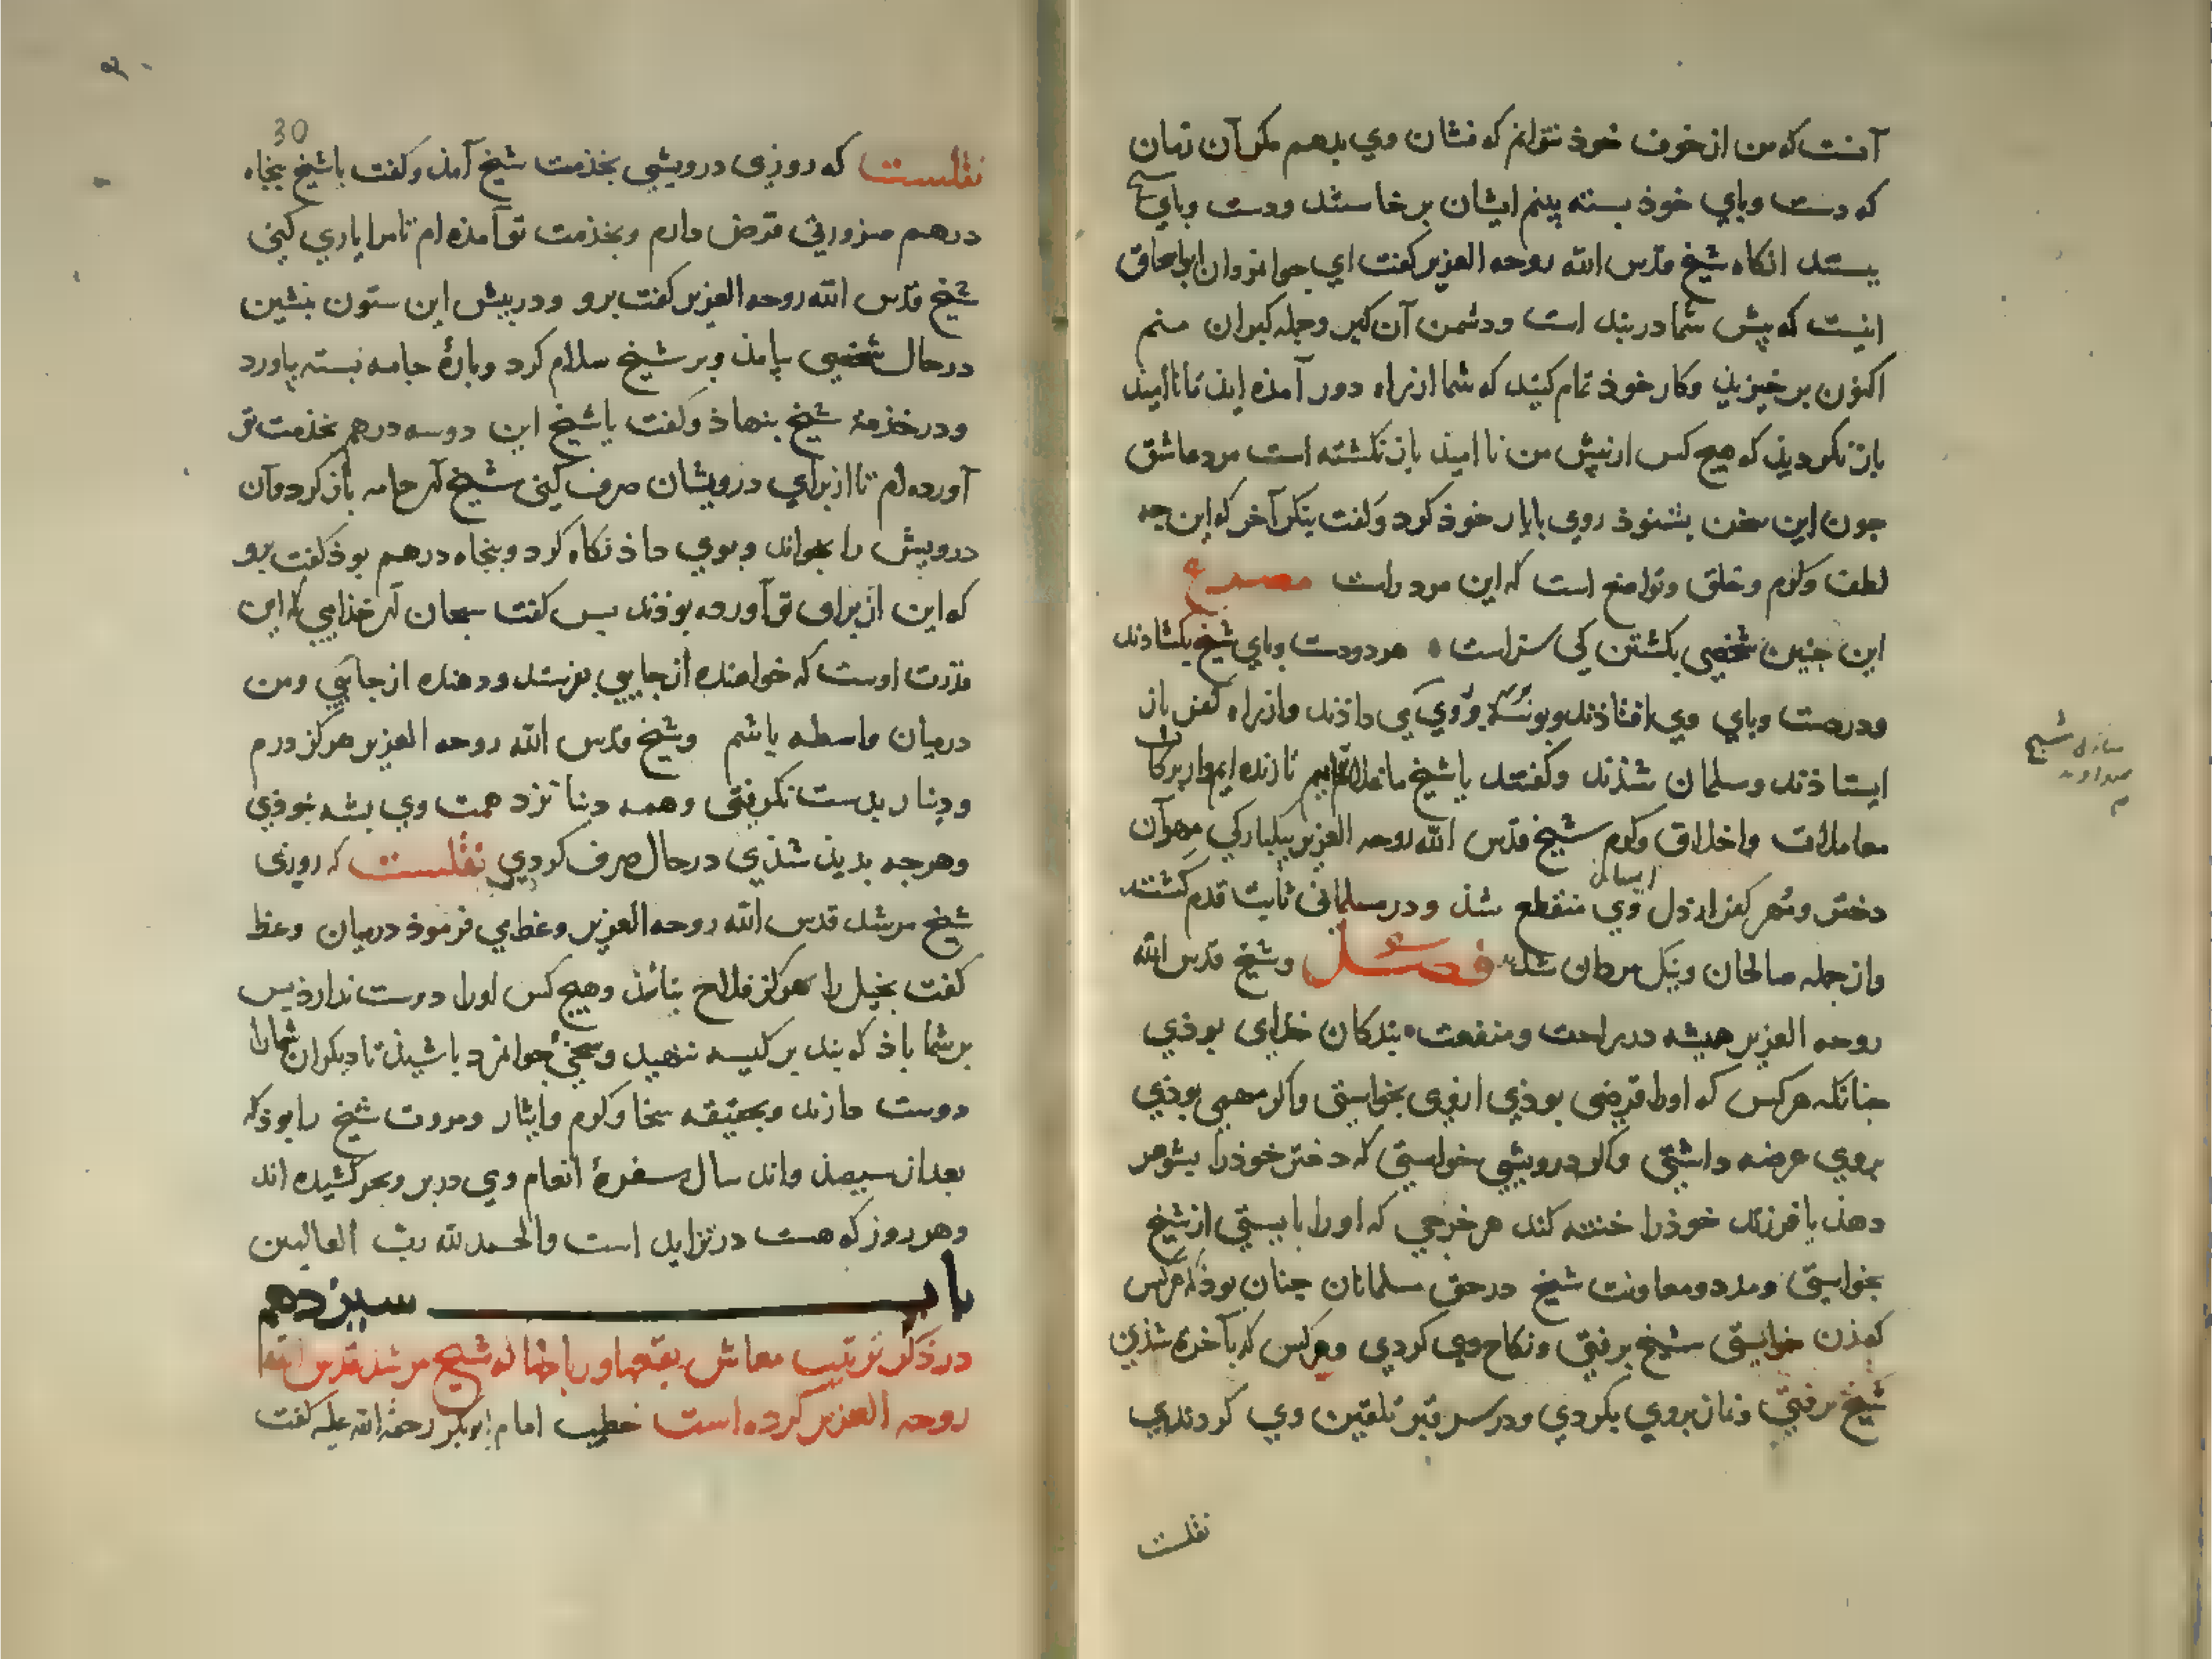 آنست که من از خوف خوذ نتوانم که نشان وي بدهم مکر آن زمان
که دست وباي خوذ بسته بینم ایشان برخاستند ودست وباي شیخ
ببستند انکاه شیخ قدس الله روحه العزیز کفت اي جوانمردان ابواسحاق
اینست که پیش شما در بند است ودشمن آن کبر وجمله کبران منم
اکنون برخیزیذ وکار خوذ تمام کنید که شما از راه دور آمذه ایذ تا ناامیذ
باز نکردیذ که هیج کس از پیش من نا امیذ باز نکشته است مرد عاشق
جون این سخن بشنوذ روي با یار خوذ کرد وکفت بنکر آخر که این جه
لطف وکرم وخلق وتواضع است که این مرد راست مصرع
این جنین شخصی بکشتن کی سزاست هر دو دست وباي شیخ بکشاذند
ودر دست وباي وي افتاذند وبوسه بر وي می داذند واز راه کفر باز
ایستاذند ومسلمان شذند وکفتند یا شیخ ما غلام توایم تا زنده ایم واز برکات
معاملات واخلاق وکرم شیخ قدس الله روحه العزیز بیکبارکی مهر آن
دختر ومهر کفر از دل وي منقطع شذ ودر مسلمانی ثابت قدم کشتند
واز جمله صالحان ونیک مردان شدند فصل وشیخ قدس الله
روحه العزیز همیشه در راحت ومنفعت بندکان خدای بوذي
جنانکه هر کس که اورا قرضی بوذي ازوی بخواستی واکر مهمی بوذي
بروي عرضه داشتی واکر درویشی خواستی که دختر خوذرا بشوهر
دهذ یا فرزند خوذرا ختنه کند هر خرجی که اورا بایستی از شیخ
بخواستی ومدد ومعاونت شیخ در حق مسلمانان جنان بوذ که هر کس
که زن خواستی شیخ برفتی ونکاح وي کردي وهرکس که بآخرة شذي
شیخ برفتی ونماز بروي بکردي ودر سر قبر تلقین وي کردندي
نقلست
30
نقلست که روزی درویشی بخذمت شیخ آمذ وکفت یا شیخ بنجاه
درهم ضرورتی قرض دارم وبخذمت تو آمذه ام تا مرا یاري کنی
شیخ قدس الله روحه العزیز کفت برو ودر پیش این ستون بنشین
در حال شخصی بیامذ وبر شیخ سلام کرد وبارۀ جامه بسته بیاورد
ودر خذمت شیخ بنهاذ وکفت یا شیخ این دوسه درهم بخذمت تو
آورده ام تا از برای درویشان صرف کنی شیخ آن جامه باز کرد وآن
درویش را بخواند وبوي داذ نکاه کرد وبنجاه درهم بوذ کفت برو
که این از برای تو آورده بوذند بس کفت سبحان آن خذایی که این
قدرت اوست که خواهنده از جایی بفرستد ودهنده از جایی ومن
در میان واسطه باشم وشیخ قدس الله روحه العزیز هرکز درم
ودینار بدست نکرفتی وهمه دنیا نزد همت وي بشه نبوذي
وهرجه بدید شذي در حال صرف کردي نقلست که روزی
شیخ مرشد قدس الله روحه العزیز وعظ می فرموذ در میان وعظ
کفت بخیل را هرکز فلاح نباشذ وهیج کس اورا دوست نداردبس
بر شما باذ که بند بر کیسه ننهید وسخی وجوانمرد باشیذ تا دیکران شمارا
دوست دارند وبحقیقه سخا وکرم وایثار ومروت شیخ را بوذ که
بعد از سیصد واند سال سفرۀ انعام وي در بر وبحر کشیده اند
وهر روز که هست در تزاید است والحمد لله رب العالمین
باب سیزدهم
در ذکر ترتیب معاش بقعها ورباطها که شیخ مرشد قدس الله
روحه العزیز کرده است خطیب امام ابوبکر رحمة الله علیه کفت